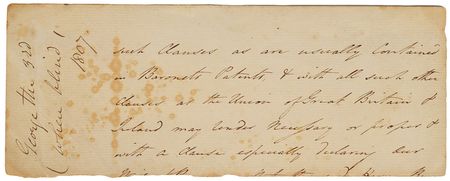 George the 3rd
(when blind!
1807
such Clauses as are usually Contained
in Baronets Patents & with all such other
clauses as the Union of Great Britain &
Ireland may render Necessary or proper &
with a Clause especially declaring Our